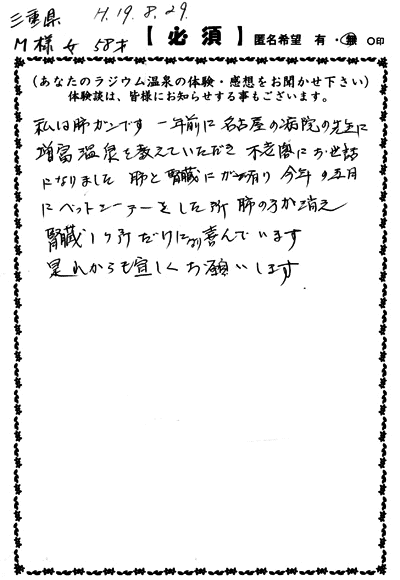 三重県 H.19.8.29.
M様 女 58才 【必須】 匿名希望 有・無 〇印
(あなたのラジウム温泉の体験・感想をお聞かせ下さい)
体験談は、皆様にお知らせする事もございます。
私は肺ガンです 一年前に名古屋の病院の先生に
増富温泉を教えていただき 不老閣にお世話
になりました 肺と腎臓にガンが有り 今年の五月
にペットシーテーをした所 肺の方が消え
腎臓1ヶ所だけになり喜んでいます
是れからも宜しくお願いします